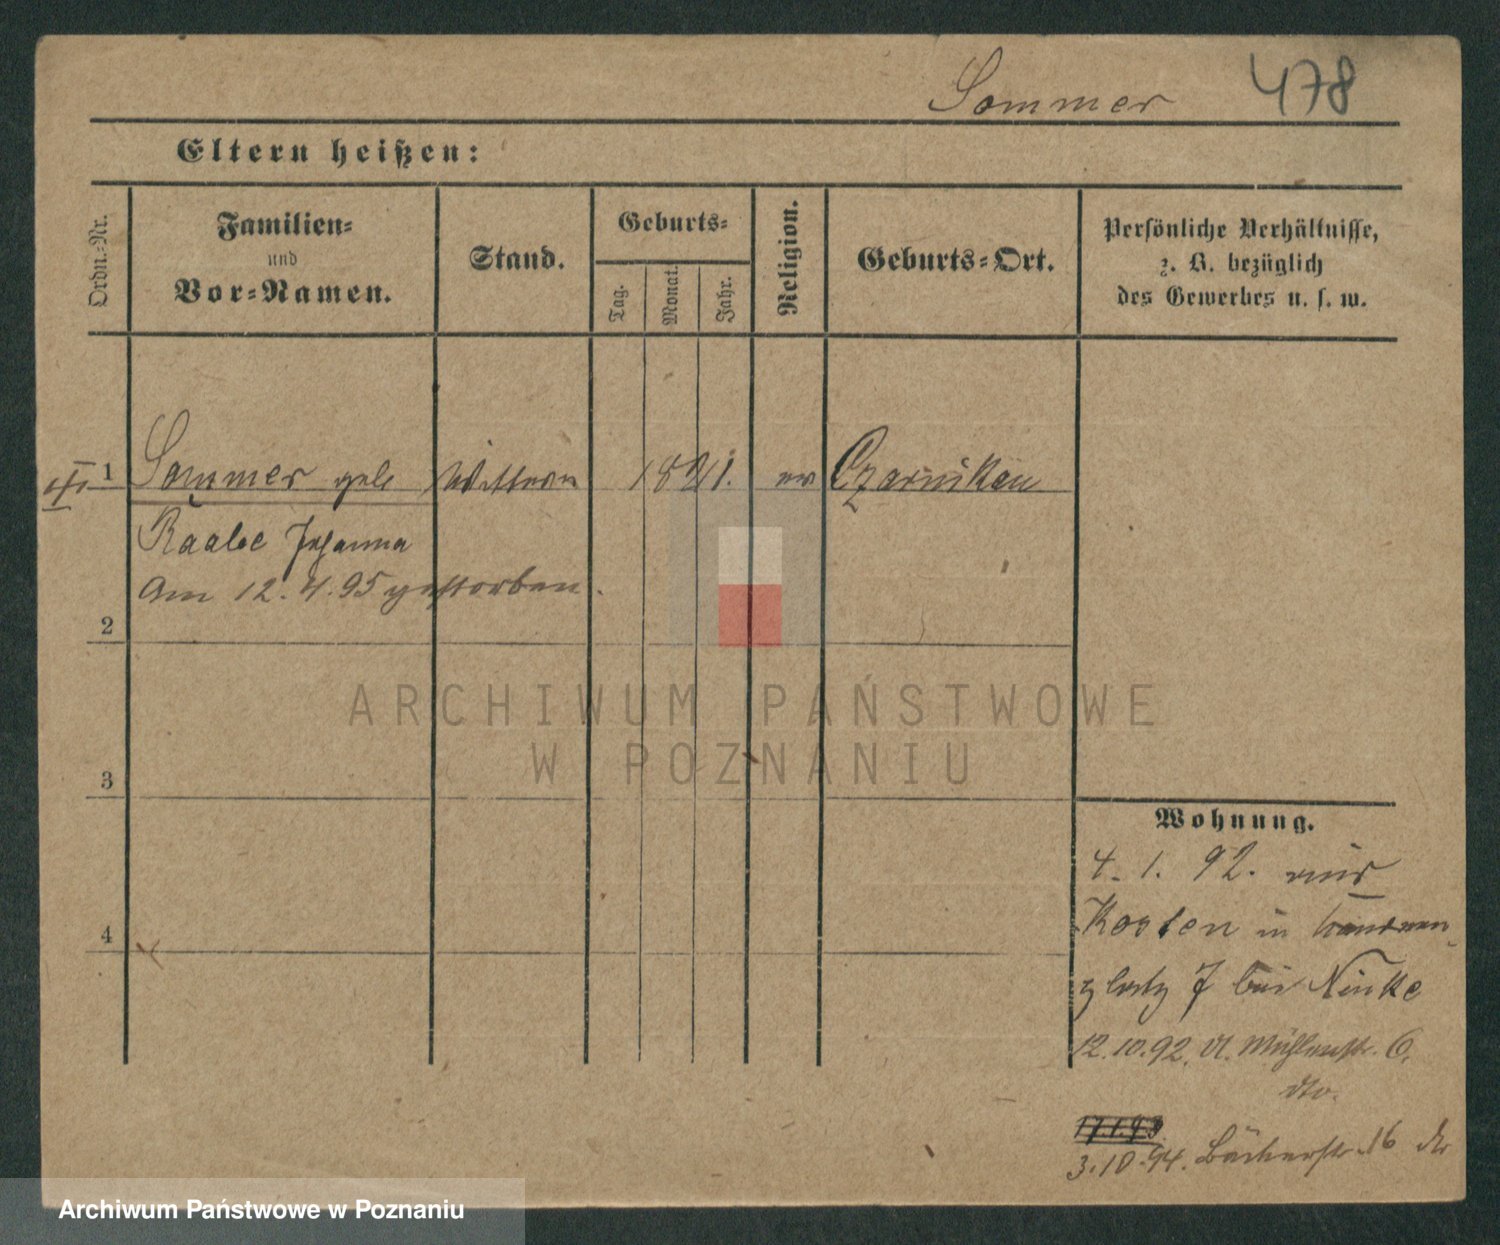 Sommer 478
Eltern heißen:
Ordn.-Nr.
Familien-
und
Vor-Namen.
Stand.
Geburts-
Tag.
Monat.
Jahr.
Religion.
Geburts-Ort.
Persönliche Verhältnisse,
z. B. bezüglich
des Gewerbes u. s. w.
1 Sommer geb Wittwe 1821. ev Czarnikau
Raabe Johanna
Am 12.4.95 gestorben.
2
3
4
Wohnung.
4.1.92. aus
Kosten in
platz 7 bei Ninke
12.10.92. Mühlenstr. 6.
dto.
17.1.93
3.10.94. Bäckerstr. 16
ARCHIWUM PAŃSTWOWE
W POZNANIU
Archiwum Państwowe w Poznaniu